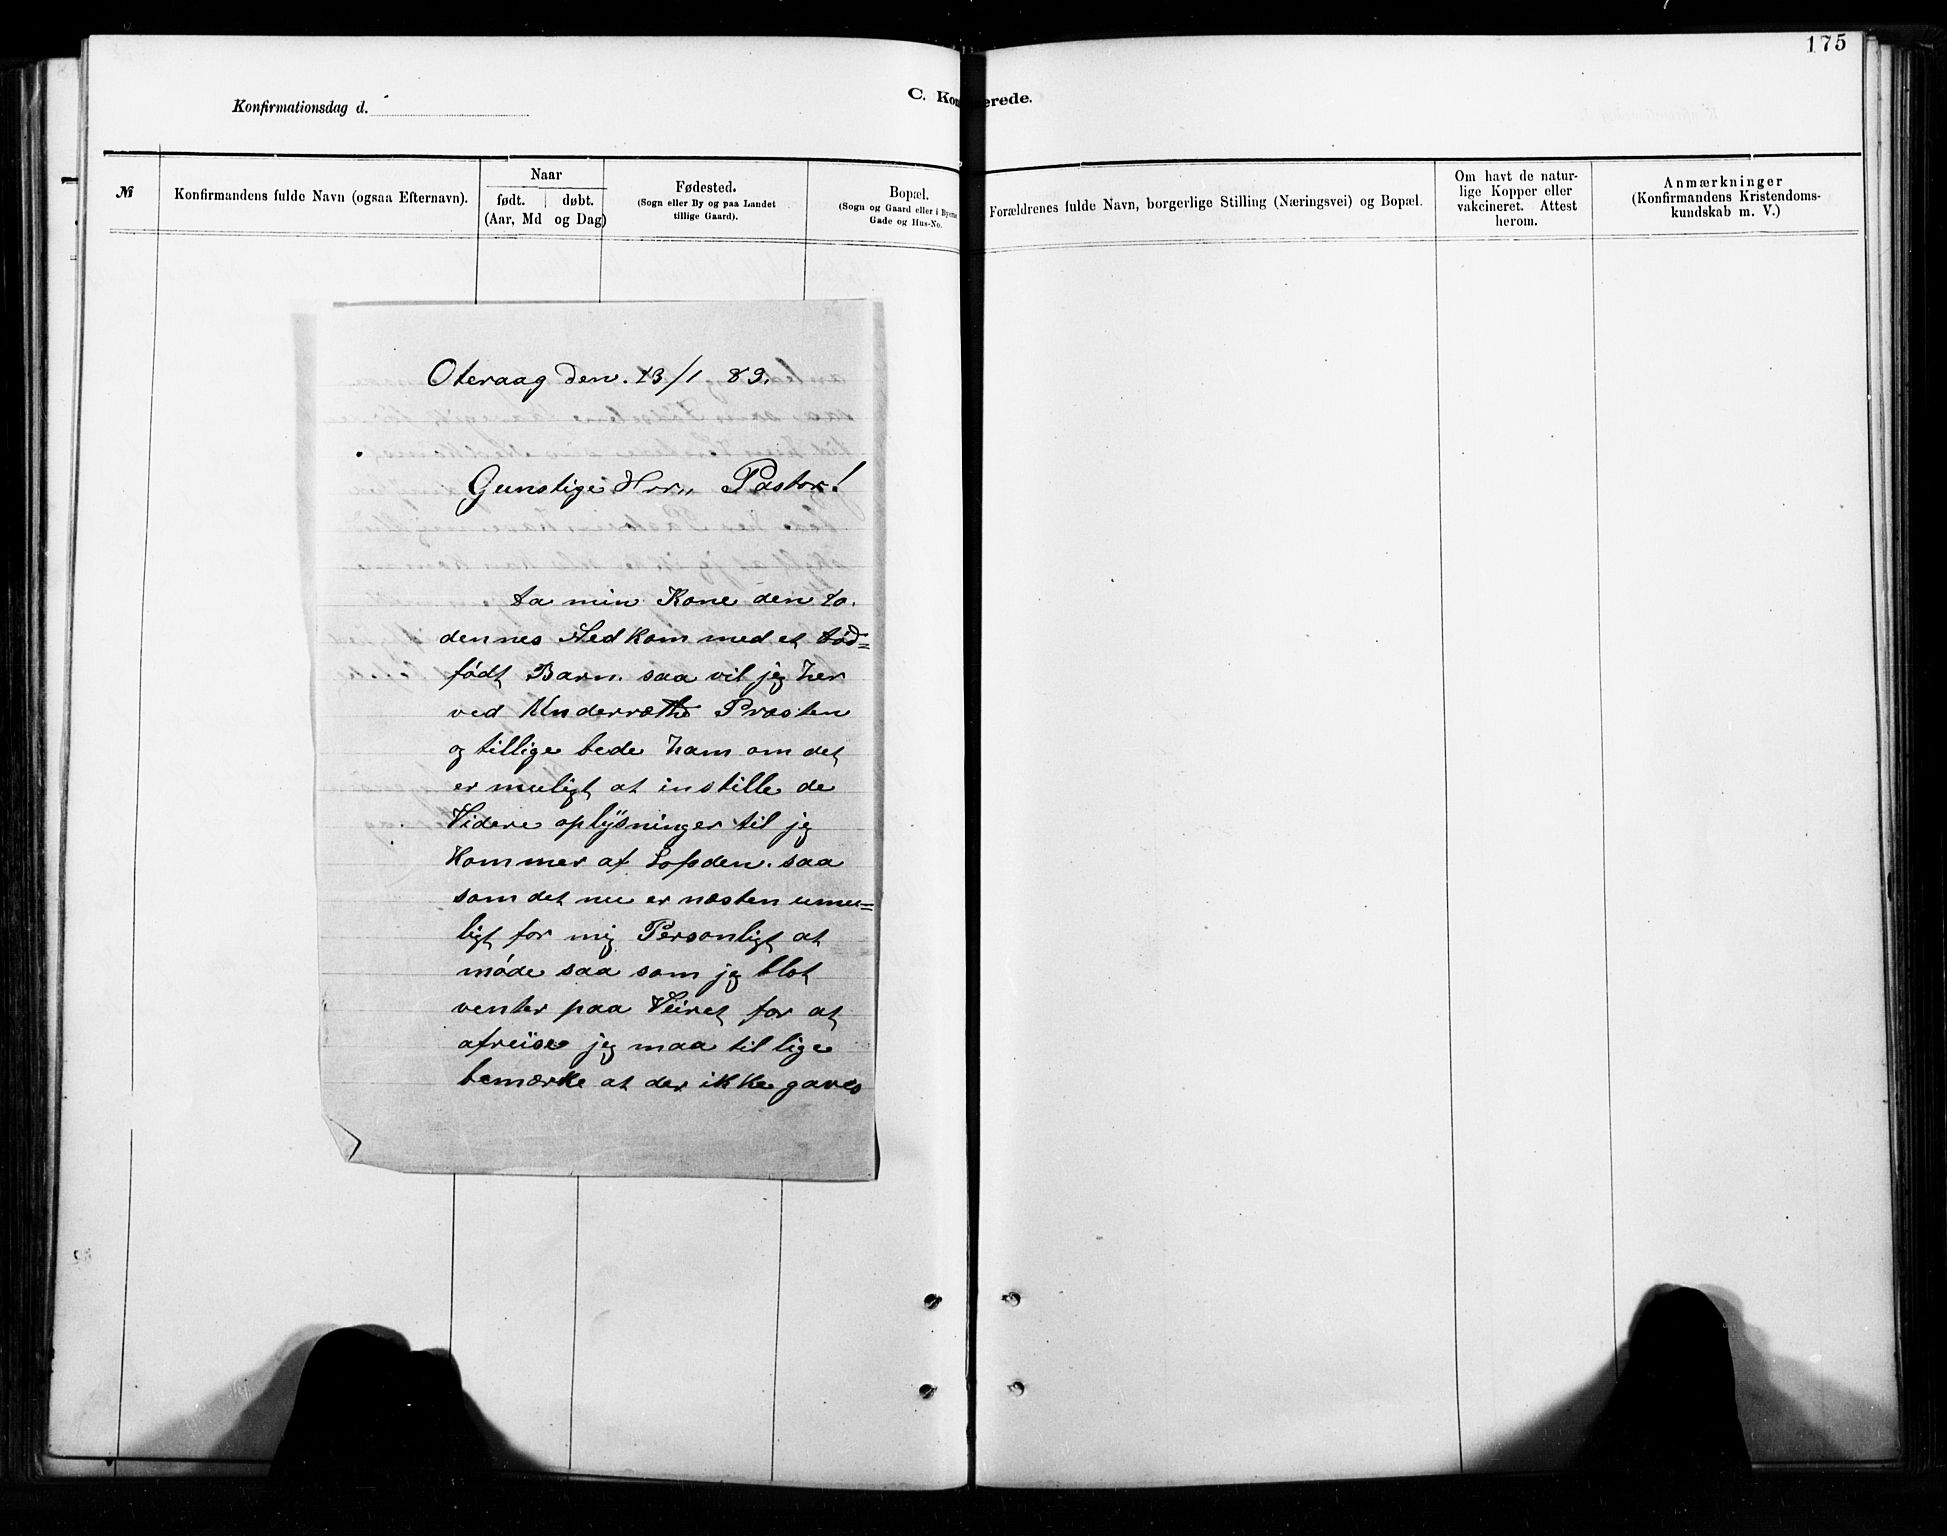 175
C. Kon erede.
Konfirmationsdag d.
№
Konfirmandens fulde Navn (ogsaa Efternavn).
Naar
født. døbt.
(Aar, Md og Dag)
Fødested.
(Sogn eller By og paa Landet
tillige Gaard).
Bopæl.
(Sogn og Gaard eller i Byerne
Gade og Hus-No.
Forældrenes fulde Navn, borgerlige Stilling (Næringsvei) og Bopæl.
Om havt de natur-
lige Kopper eller
vakcineret. Attest
herom.
Anmærkninger
(Konfirmandens Kristendoms-
kundskab m. V.)
Oteraag den. 13/1 89.
Gunstige Hrr,, Pastor!
da min Kone den 10.
dennes Nedkom med et død=
født Barn. saa vil jeg her
ved Underrætte Præsten
og tillige bede ham om det
er muligt at instille de
Videre oplysninger til jeg
kommer af Lofoden. saa
som det nu er næsten umu=
ligt for mig Personligt at
møde saa som jeg blot
venter paa Veiret for at
afreise jeg maa til lige
bemærke at der ikke gaves